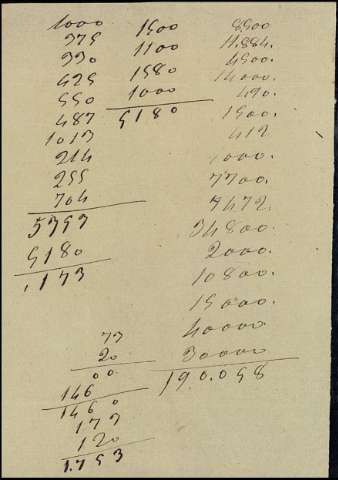 1000
375
330
425
550
487
1013
214
255
704
5353
5180
.173
1500
1100
1580
1000
5180
8500
11.884.
4500.
14000.
490.
1500.
412
1000.
7700.
7472.
34800.
2000.
10800.
15000.
40000
30000
190.058
73
20
00.
146
1460
173
120
1.753